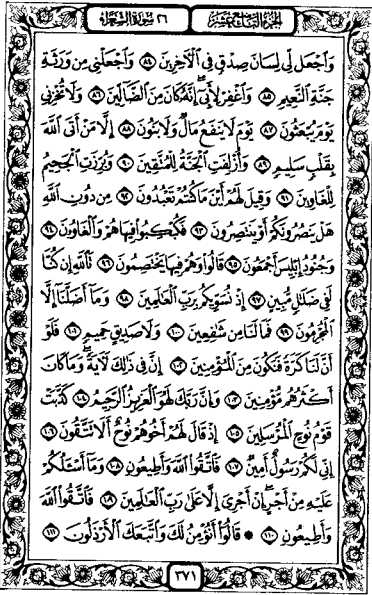 الجزء التاسع عشر ٢٦ سورة الشعراء
وَاجْعَل لِّي لِسَانَ صِدْقٍ فِي الْآخِرِينَ ٨٤ وَاجْعَلْنِي مِن وَرَثَةِ
جَنَّةِ النَّعِيمِ ٨٥ وَاغْفِرْ لِأَبِي إِنَّهُ كَانَ مِنَ الضَّالِّينَ ٨٦ وَلَا تُخْزِنِي
يَوْمَ يُبْعَثُونَ ٨٧ يَوْمَ لَا يَنفَعُ مَالٌ وَلَا بَنُونَ ٨٨ إِلَّا مَنْ أَتَى اللَّهَ
بِقَلْبٍ سَلِيمٍ ٨٩ وَأُزْلِفَتِ الْجَنَّةُ لِلْمُتَّقِينَ ٩٠ وَبُرِّزَتِ الْجَحِيمُ
لِلْغَاوِينَ ٩١ وَقِيلَ لَهُمْ أَيْنَ مَا كُنتُمْ تَعْبُدُونَ ٩٢ مِن دُونِ اللَّهِ
هَلْ يَنصُرُونَكُمْ أَوْ يَنتَصِرُونَ ٩٣ فَكُبْكِبُوا فِيهَا هُمْ وَالْغَاوُونَ ٩٤
وَجُنُودُ إِبْلِيسَ أَجْمَعُونَ ٩٥ قَالُوا وَهُمْ فِيهَا يَخْتَصِمُونَ ٩٦ تَاللَّهِ إِن كُنَّا
لَفِي ضَلَالٍ مُّبِينٍ ٩٧ إِذْ نُسَوِّيكُم بِرَبِّ الْعَالَمِينَ ٩٨ وَمَا أَضَلَّنَا إِلَّا
الْمُجْرِمُونَ ٩٩ فَمَا لَنَا مِن شَافِعِينَ ١٠٠ وَلَا صَدِيقٍ حَمِيمٍ ١٠١ فَلَوْ
أَنَّ لَنَا كَرَّةً فَنَكُونَ مِنَ الْمُؤْمِنِينَ ١٠٢ إِنَّ فِي ذَٰلِكَ لَآيَةً وَمَا كَانَ
أَكْثَرُهُم مُّؤْمِنِينَ ١٠٣ وَإِنَّ رَبَّكَ لَهُوَ الْعَزِيزُ الرَّحِيمُ ١٠٤ كَذَّبَتْ
قَوْمُ نُوحٍ الْمُرْسَلِينَ ١٠٥ إِذْ قَالَ لَهُمْ أَخُوهُمْ نُوحٌ أَلَا تَتَّقُونَ ١٠٦
إِنِّي لَكُمْ رَسُولٌ أَمِينٌ ١٠٧ فَاتَّقُوا اللَّهَ وَأَطِيعُونِ ١٠٨ وَمَا أَسْأَلُكُمْ
عَلَيْهِ مِنْ أَجْرٍ إِنْ أَجْرِيَ إِلَّا عَلَىٰ رَبِّ الْعَالَمِينَ ١٠٩ فَاتَّقُوا اللَّهَ
وَأَطِيعُونِ ١١٠ قَالُوا أَنُؤْمِنُ لَكَ وَاتَّبَعَكَ الْأَرْذَلُونَ ١١١
٣٧١